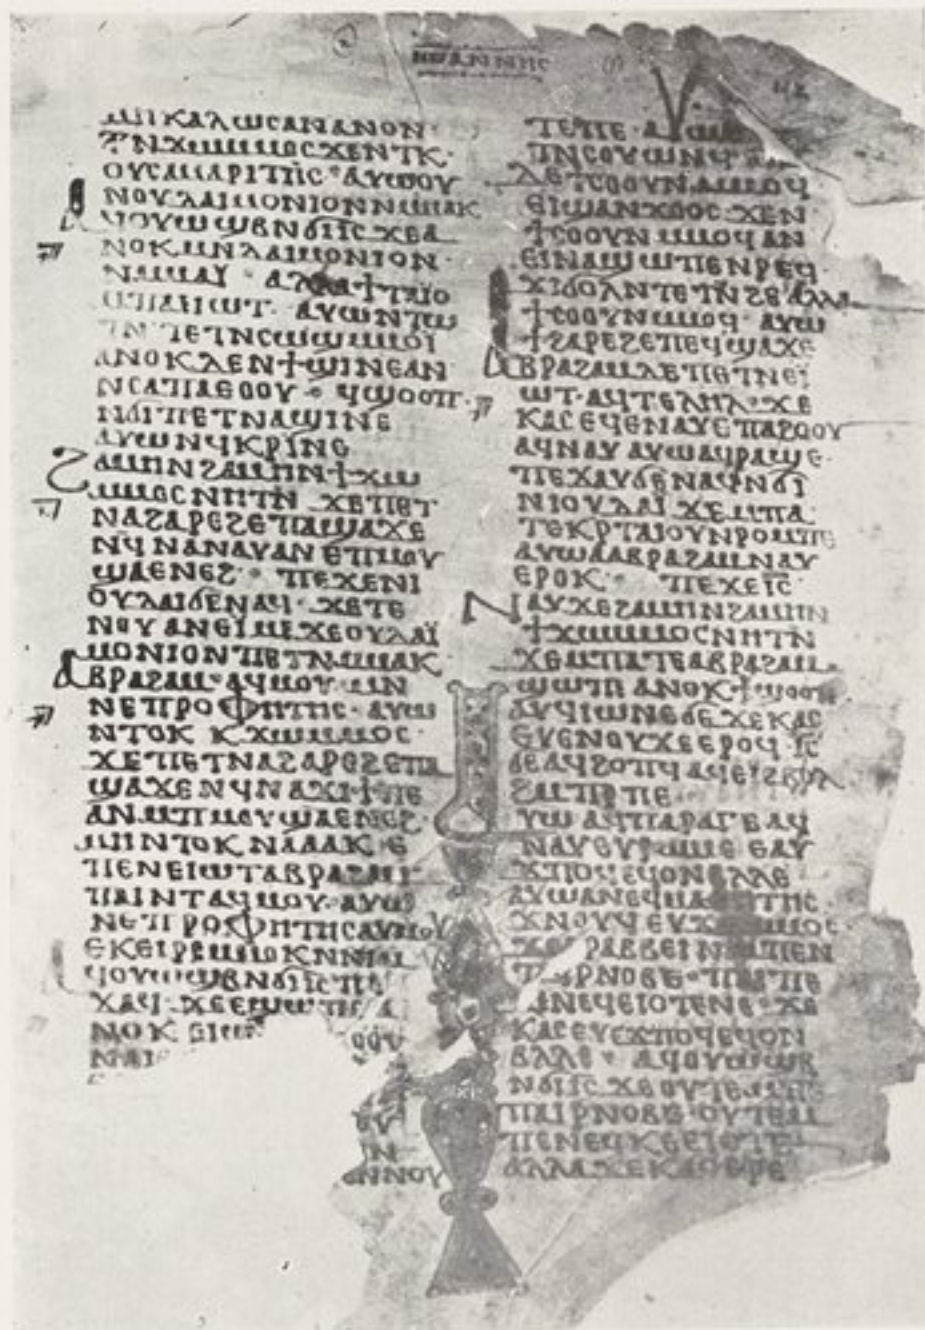 ⲓⲱⲁⲛⲛⲏⲥ
ⲙⲏⲕⲁⲗⲱⲥⲁⲛⲁⲛⲟⲛ·
ⲧⲛϫⲱⲙⲙⲟⲥϫⲉⲛⲧⲕ·
ⲟⲩⲥⲁⲙⲁⲣⲓⲧⲏⲥ·ⲁⲩⲱⲟⲩ
ⲛⲟⲩⲇⲁⲓⲙⲟⲛⲓⲟⲛⲛⲙⲙⲁⲕ
ⲁϥⲟⲩⲱϣⲃⲛϭⲓⲓⲥ̅ϫⲉⲁ
ⲛⲟⲕⲙⲛⲇⲁⲓⲙⲟⲛⲓⲟⲛ·
ⲛⲙⲙⲁⲓ·ⲁⲗⲗⲁϯⲧⲁⲓⲟ
ⲙⲡⲁⲉⲓⲱⲧ·ⲁⲩⲱⲛⲧⲱ
ⲧⲛⲧⲉⲧⲛⲥⲱϣⲙⲙⲟⲓ
ⲁⲛⲟⲕⲇⲉⲛϯϣⲓⲛⲉⲁⲛ
ⲛⲥⲁⲡⲁⲉⲟⲟⲩ·ϥϣⲟⲟⲡ·
ⲛϭⲓⲡⲉⲧⲛⲁϣⲓⲛⲉ
ⲁⲩⲱⲛϥⲕⲣⲓⲛⲉ
ϩⲁⲙⲏⲛϩⲁⲙⲏⲛϯϫⲱ
ⲙⲙⲟⲥⲛⲏⲧⲛϫⲉⲡⲉⲧ
ⲛⲁϩⲁⲣⲉϩⲉⲡⲁϣⲁϫⲉ
ⲛϥⲛⲁⲛⲁⲩⲁⲛⲉⲡⲙⲟⲩ
ϣⲁⲉⲛⲉϩ·ⲡⲉϫⲉⲛⲓ
ⲟⲩⲇⲁⲓϭⲉⲛⲁϥ·ϫⲉⲧⲉ
ⲛⲟⲩⲁⲛⲉⲓⲙⲉϫⲉⲟⲩⲇⲁⲓ
ⲙⲟⲛⲓⲟⲛⲡⲉⲧⲛⲙⲙⲁⲕ
ⲁⲃⲣⲁϩⲁⲙ·ⲁϥⲙⲟⲩ·ⲙⲛ
ⲛⲉⲡⲣⲟⲫⲏⲧⲏⲥ·ⲁⲩⲱ
ⲛⲧⲟⲕⲕϫⲱⲙⲙⲟⲥ·
ϫⲉⲡⲉⲧⲛⲁϩⲁⲣⲉϩⲉⲡⲁ
ϣⲁϫⲉⲛϥⲛⲁϫⲓϯⲡⲉ
ⲁⲛⲙⲡⲙⲟⲩϣⲁⲉⲛⲉϩ·
ⲙⲏⲛⲧⲟⲕⲛⲁⲁⲁⲕⲉ
ⲡⲉⲛⲉⲓⲱⲧⲁⲃⲣⲁϩⲁⲙ·
ⲡⲁⲓⲛⲧⲁϥⲙⲟⲩ·ⲁⲩⲱ
ⲛⲉⲡⲣⲟⲫⲏⲧⲏⲥⲁⲩⲙⲟⲩ
ⲉⲕⲉⲓⲣⲉⲙⲙⲟⲕⲛⲛⲓⲙ
ⲁϥⲟⲩⲱϣⲃⲛϭⲓⲓⲥ̅ⲡⲉ
ϫⲁϥ·ϫⲉⲉϣⲱⲡⲉⲁ
ⲛⲟⲕⲉⲓϣ ⲉⲟⲟⲩ
ⲛⲁⲓ
ⲧⲉⲡⲉ·ⲁⲩⲱ
ⲡⲛⲥⲟⲩⲱⲛϥ
ⲇⲉϯⲥⲟⲟⲩⲛⲙⲙⲟϥ
ⲉⲓϣⲁⲛϫⲟⲟⲥ·ϫⲉⲛ
ϯⲥⲟⲟⲩⲛⲙⲙⲟϥⲁⲛ
ⲉⲓⲛⲁϣⲱⲡⲉⲛⲣⲉϥ·
ϫⲓϭⲟⲗⲛⲧⲉⲧⲛϩⲉ·ⲁⲗⲗⲁ
ϯⲥⲟⲟⲩⲛⲙⲙⲟϥ·ⲁⲩⲱ
ϯϩⲁⲣⲉϩⲉⲡⲉϥϣⲁϫⲉ
ⲁⲃⲣⲁϩⲁⲙⲡⲉⲧⲛⲉⲓ
ⲱⲧ·ⲁϥⲧⲉⲗⲏⲗ·ϫⲉ
ⲕⲁⲥⲉϥⲉⲛⲁⲩⲉⲡⲁϩⲟⲟⲩ
ⲁϥⲛⲁⲩⲁⲩⲱⲁϥⲣⲁϣⲉ·
ⲡⲉϫⲁⲩϭⲉⲛⲁϥⲛϭⲓ
ⲛⲓⲟⲩⲇⲁⲓϫⲉⲙⲡⲁ
ⲧⲉⲕⲣⲧⲁⲓⲟⲩⲛⲣⲟⲙⲡⲉ
ⲁⲩⲱⲁⲁⲃⲣⲁϩⲁⲙⲛⲁⲩ
ⲉⲣⲟⲕ·ⲡⲉϫⲉⲓⲥ̅
ⲛⲁⲩϫⲉϩⲁⲙⲏⲛϩⲁⲙⲏⲛ
ϯϫⲱⲙⲙⲟⲥⲛⲏⲧⲛ
ϫⲉⲙⲡⲁⲧⲉⲁⲃⲣⲁϩⲁⲙ
ϣⲱⲡⲉⲁⲛⲟⲕϯϣⲟⲟⲡ
ⲁⲩϥⲓⲱⲛⲉϭⲉϫⲉⲕⲁⲥ
ⲉⲩⲉⲛⲟⲩϫⲉⲉⲣⲟϥ·ⲓⲥ̅
ⲇⲉⲁϥϩⲟⲡϥⲁϥⲉⲓⲉⲃⲟⲗ
ϩⲙⲡⲣⲡⲉ
ⲁⲩⲱⲁϥⲡⲁⲣⲁⲅⲉⲁϥ
ⲛⲁⲩⲉⲩⲣⲱⲙⲉⲉⲁⲩ
ϫⲡⲟϥⲉϥⲟⲛⲃⲗⲗⲉ
ⲁⲩⲱⲁⲛⲉϥⲙⲁⲑⲏⲧⲏⲥ
ϫⲛⲟⲩϥⲉⲩϫⲱⲙⲙⲟⲥ
ϫⲉϩⲣⲁⲃⲃⲉⲓⲛⲓⲙⲡⲉⲛ
ⲧⲁϥⲣⲛⲟⲃⲉ·ⲡⲁⲓⲡⲉ
ϫⲛⲛⲉϥⲉⲓⲟⲧⲉⲛⲉ·ϫⲉ
ⲕⲁⲥⲉⲩⲉϫⲡⲟϥⲉϥⲟⲛ
ⲃⲗⲗⲉ·ⲁϥⲟⲩⲱϣⲃ
ⲛϭⲓⲓⲥ̅ϫⲉⲟⲩⲧⲉⲙⲡⲉ
ⲡⲁⲓⲣⲛⲟⲃⲉ·ⲟⲩⲧⲉⲙ
ⲡⲉⲛⲉϥⲕⲉⲉⲓⲟⲧⲉ
ⲁⲗⲗⲁϫⲉⲕⲁⲥⲉⲣⲉ